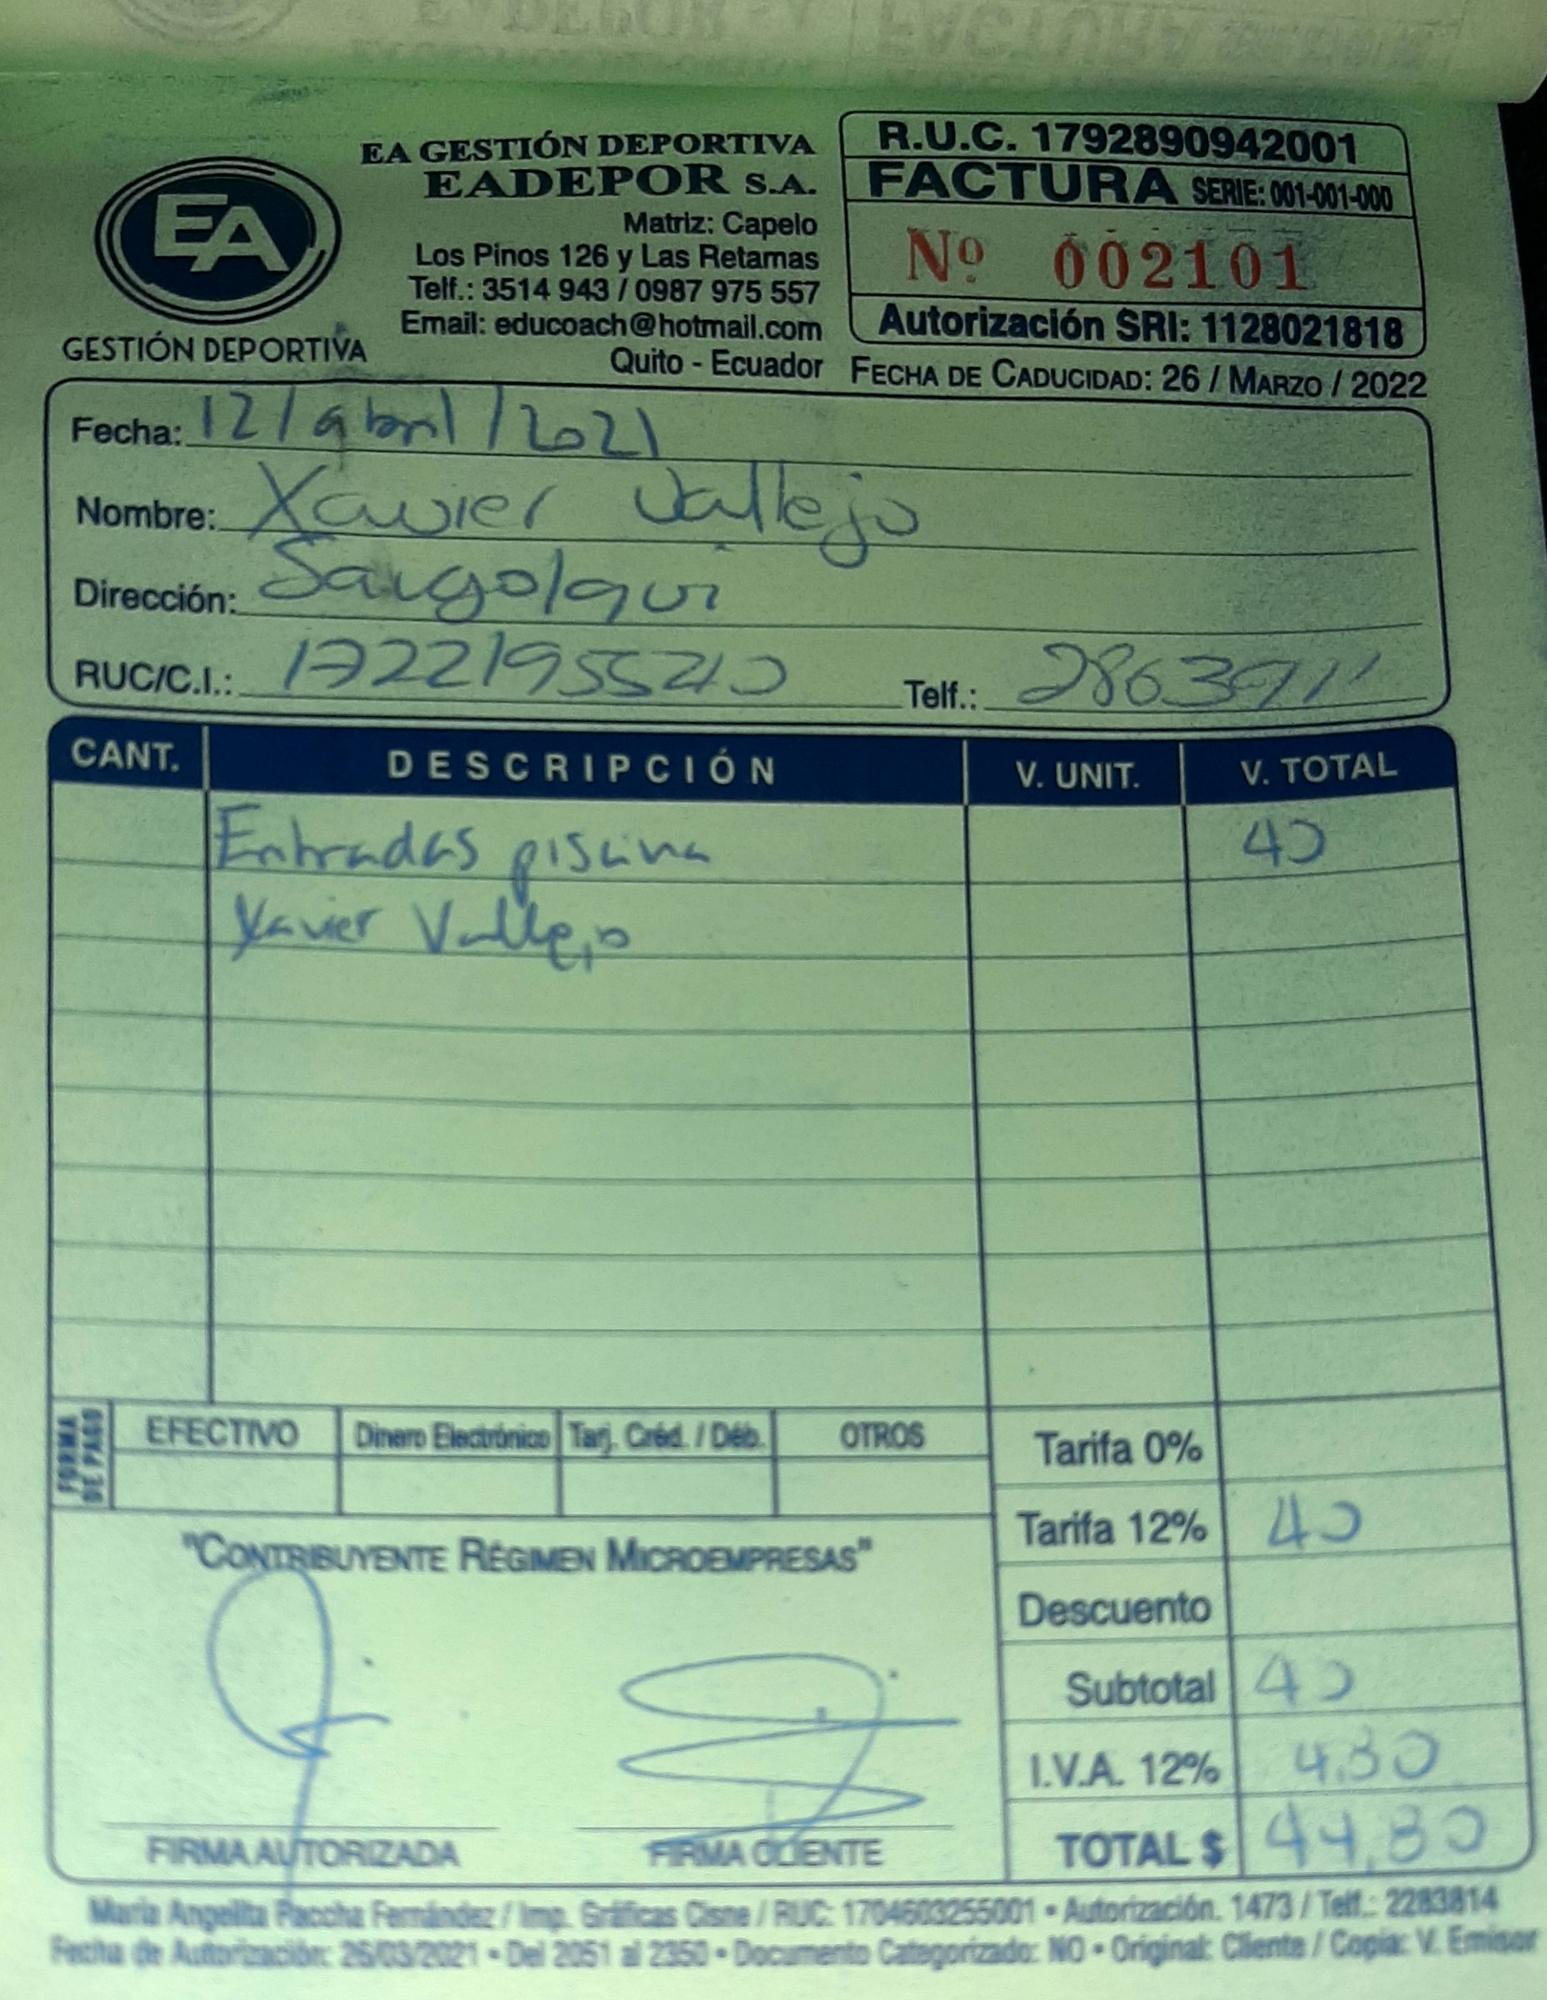 EA GESTIÓN DEPORTIVA
EADEPOR S.A.
Matriz: Capelo
Los Pinos 126 y Las Retamas
Telf.: 3514 943 / 0987 975 557
Email: educoach@hotmail.com
Quito - Ecuador
EA
GESTIÓN DEPORTIVA
R.U.C. 1792890942001
FACTURA SERIE: 001-001-000
Nº 002101
Autorización SRI: 1128021818
FECHA DE CADUCIDAD: 26 / MARZO / 2022
Fecha: 12/abril/2021
Nombre: Xavier Vallejo
Dirección: Sangolqui
RUC/C.I.: Telf.:
CANT. DESCRIPCIÓN V. UNIT. V. TOTAL
Entradas piscina 40
Xavier Vallejo
FORMA DE PAGO
EFECTIVO Dinero Electrónico Tarj. Créd. / Déb. OTROS
Tarifa 0%
Tarifa 12% 40
Descuento
Subtotal 40
I.V.A. 12% 4.80
TOTAL $ 44,80
"CONTRIBUYENTE RÉGIMEN MICROEMPRESAS"
FIRMA AUTORIZADA FIRMA CLIENTE
María Angelita Paccha Fernández / Imp. Gráficas Cisne / RUC: 1704603255001 • Autorización. 1473 / Telf.: 2283814
Fecha de Autorización: 26/03/2021 • Del 2051 al 2350 • Documento Categorizado: NO • Original: Cliente / Copia: V. Emisor